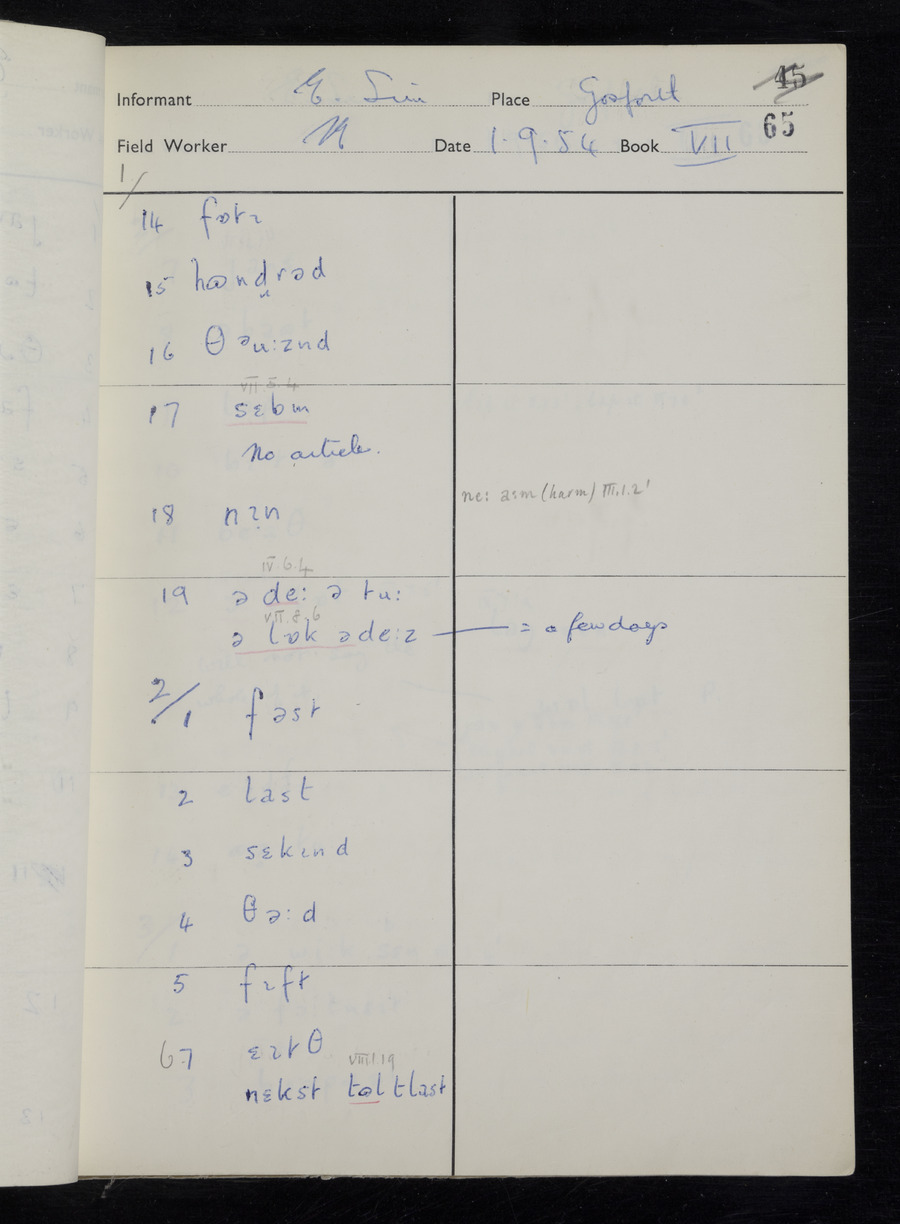 Informant E. Place Gosforth 45
65
Field Worker Date 1.9.54 Book VII
1/
14 fɒtɪ
15 hʊndrəd
16 θəu:znd
VII.5.4
17 sɛbm
No article.
18 nɪn
ne: aɪm (harm) III.1.2'
IV.6.4
19 ə de: ə tu:
VII.8.6
ə lɒk əde:z = a few days
2/1 fəst
2 last
3 sɛkɪnd
4 θə:d
5 fɪft
6-7 ɛɪtθ
VIII.1.19
nɛkst təl tlast